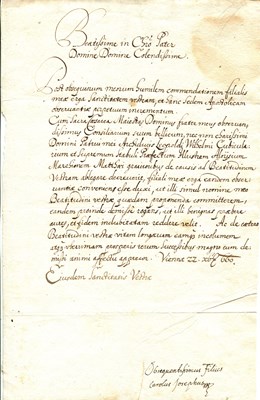 Beatissime in Chro Pater
Domine Domine Colendissime
Post obsequiorum meorum humilem commendationem filialis
meæ erga Sanctitatem vestram, et hanc Sedem Apostolicam
observantiæ perpetuum incrementum.
Cum Sacra Cæsarea Maiestas Dominus frater meus observan-
dissimus Consiliarium suum Bellicum, nec non charissimi
Domini Patrui mei Archiducis Leopoldi Wilhelmi Cubicula-
rium et supremum stabuli Præfectum Illustrem Aloysium
Marchionem Matthæi gravibus de causis ad Beatitudinem
Vestram ablegare decreverit, filiali meæ erga eandem obser-
vantiæ conveniens esse duxi, ut illi simul nomine meo
Beatitudini vestræ quædam proponenda committerem,
eandem proinde demisse rogans, ut illi benignas præbere
aures, et fidem indubitatam reddere velit. Ac de cætero
Beatitudini vestræ vitam longævam eamque incolumem
ac rerum successibus magno cum de-
misi animi affectu apprecor. Viennæ 22
Eiusdem Sanctitatis Vestræ
Obsequentissimus Filius
Carolus Josephus